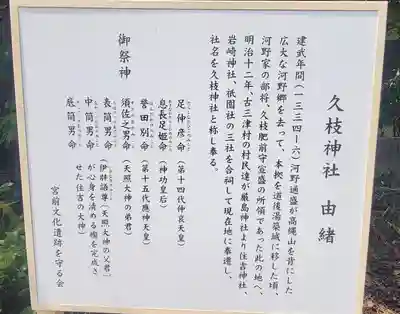 久枝神社 由緒
建武年間(一三三四-六)河野通盛が高縄山を背にした
広大な河野郷を去って、本拠を道後湯築城に移した頃、
河野家の部将、久枝肥前守宣盛の所領であった此の地へ、
明治十二年、古三津村の村民達が厳島神社より住吉神社、
岩崎神社、祇園社の三社を合祠して現在地に奉遷し、
社名を久枝神社と称し奉る。
御祭神
足仲彦命(第十四代仲哀天皇)
息長足姫命(神功皇后)
誉田別命(第十五代應神天皇)
須佐之男命(天照大神の弟君)
表筒男命(伊弉諾尊(天照大神の父君)
中筒男命 が心身を清める禊を完成さ
底筒男命 せた住吉の大神)
宮前文化遺跡を守る会